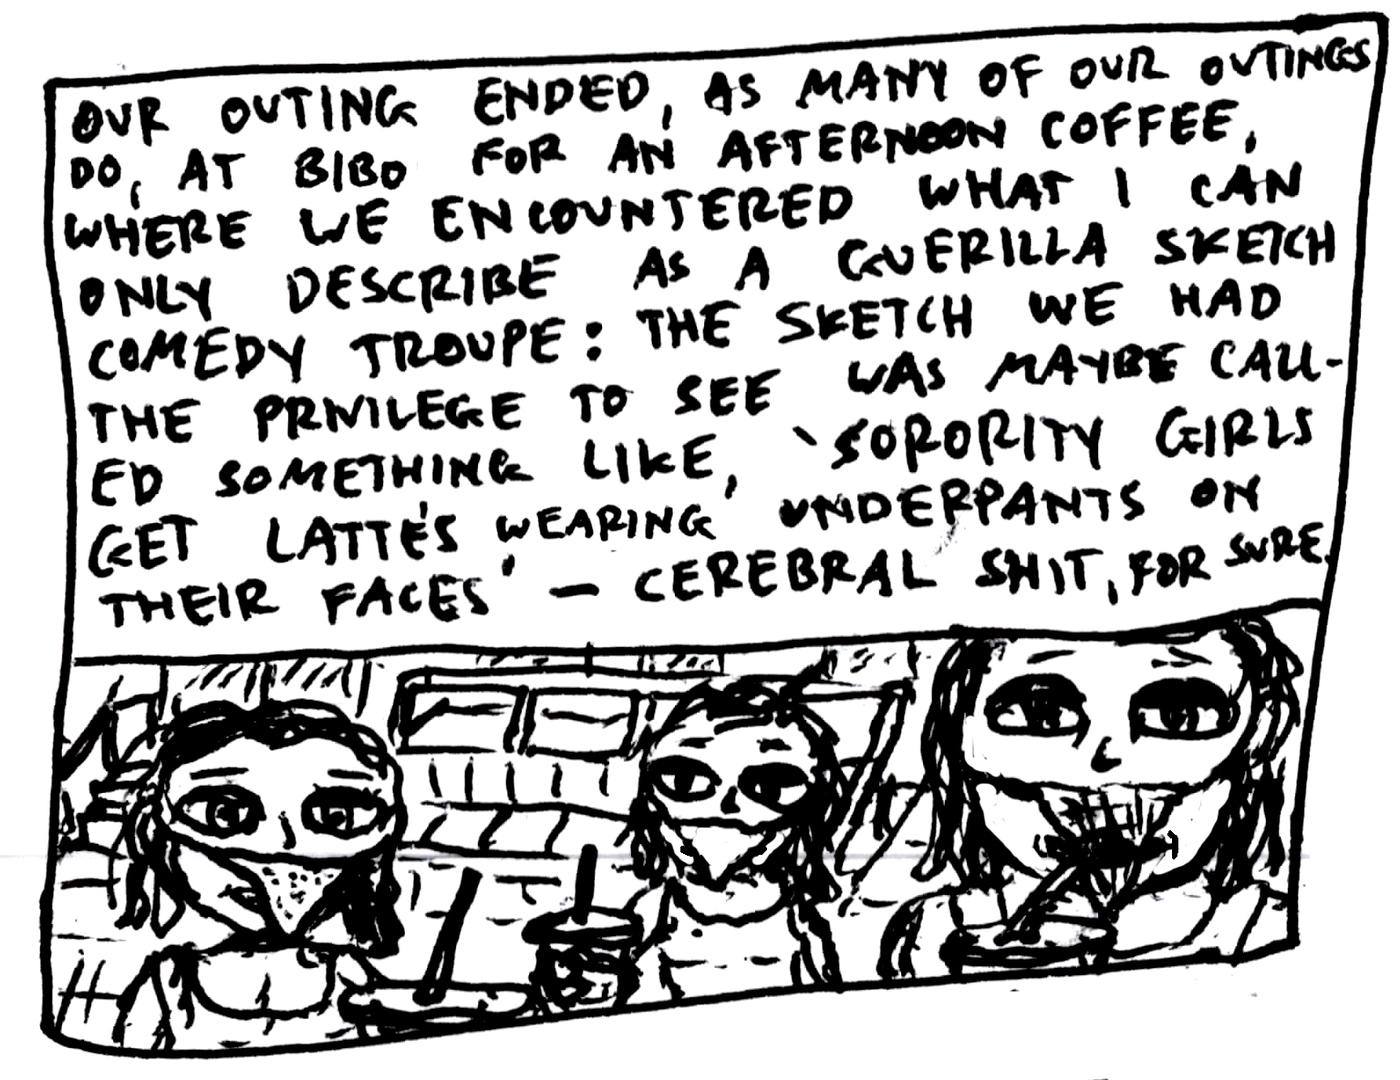 OUR OUTING ENDED, AS MANY OF OUR OUTINGS
DO, AT BIBO FOR AN AFTERNOON COFFEE,
WHERE WE ENCOUNTERED WHAT I CAN
ONLY DESCRIBE AS A GUERILLA SKETCH
COMEDY TROUPE: THE SKETCH WE HAD
THE PRIVILEGE TO SEE WAS MAYBE CALL-
ED SOMETHING LIKE, 'SORORITY GIRLS
GET LATTÉS WEARING UNDERPANTS ON
THEIR FACES' — CEREBRAL SHIT, FOR SURE.